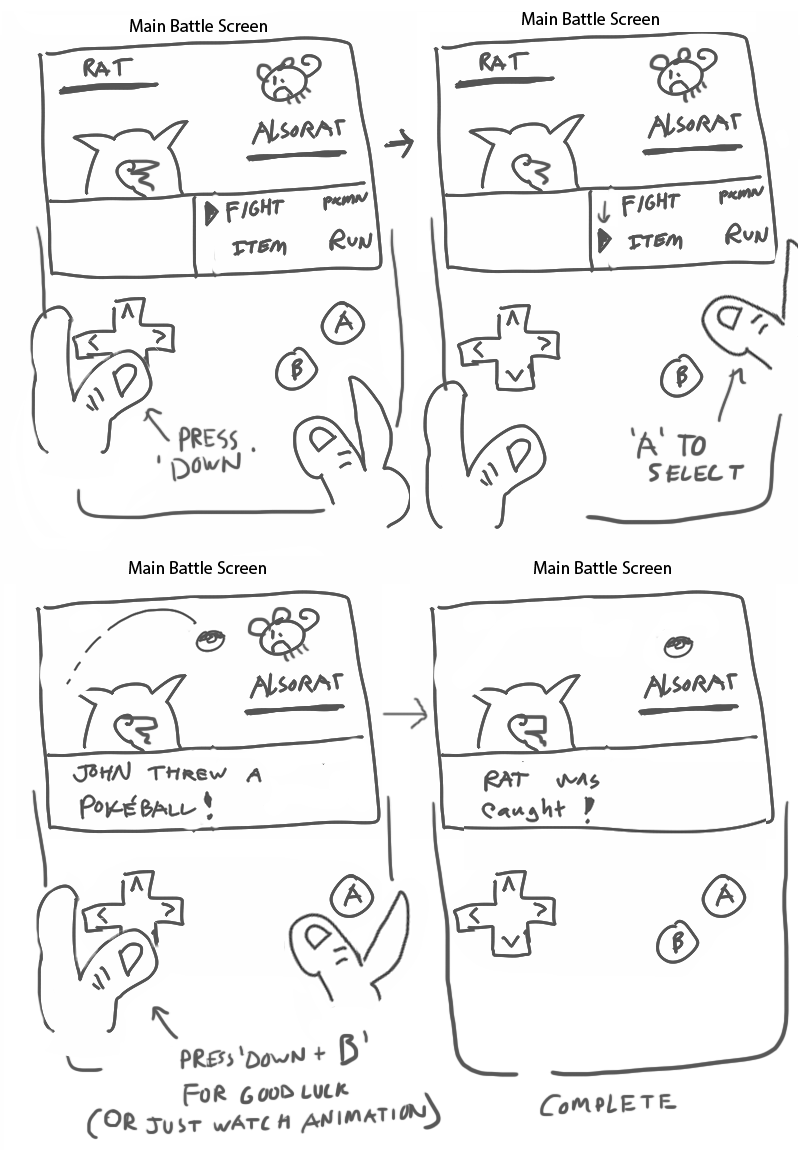 Main Battle Screen
RAT
ALSORAT
FIGHT PKMN
ITEM RUN
A
B
PRESS
'DOWN'
Main Battle Screen
RAT
ALSORAT
FIGHT PKMN
ITEM RUN
B
'A' TO
SELECT
Main Battle Screen
ALSORAT
JOHN THREW A
POKÉBALL!
A
PRESS 'DOWN + B'
FOR GOOD LUCK
(OR JUST WATCH ANIMATION)
Main Battle Screen
ALSORAT
RAT WAS
caught!
A
B
COMPLETE